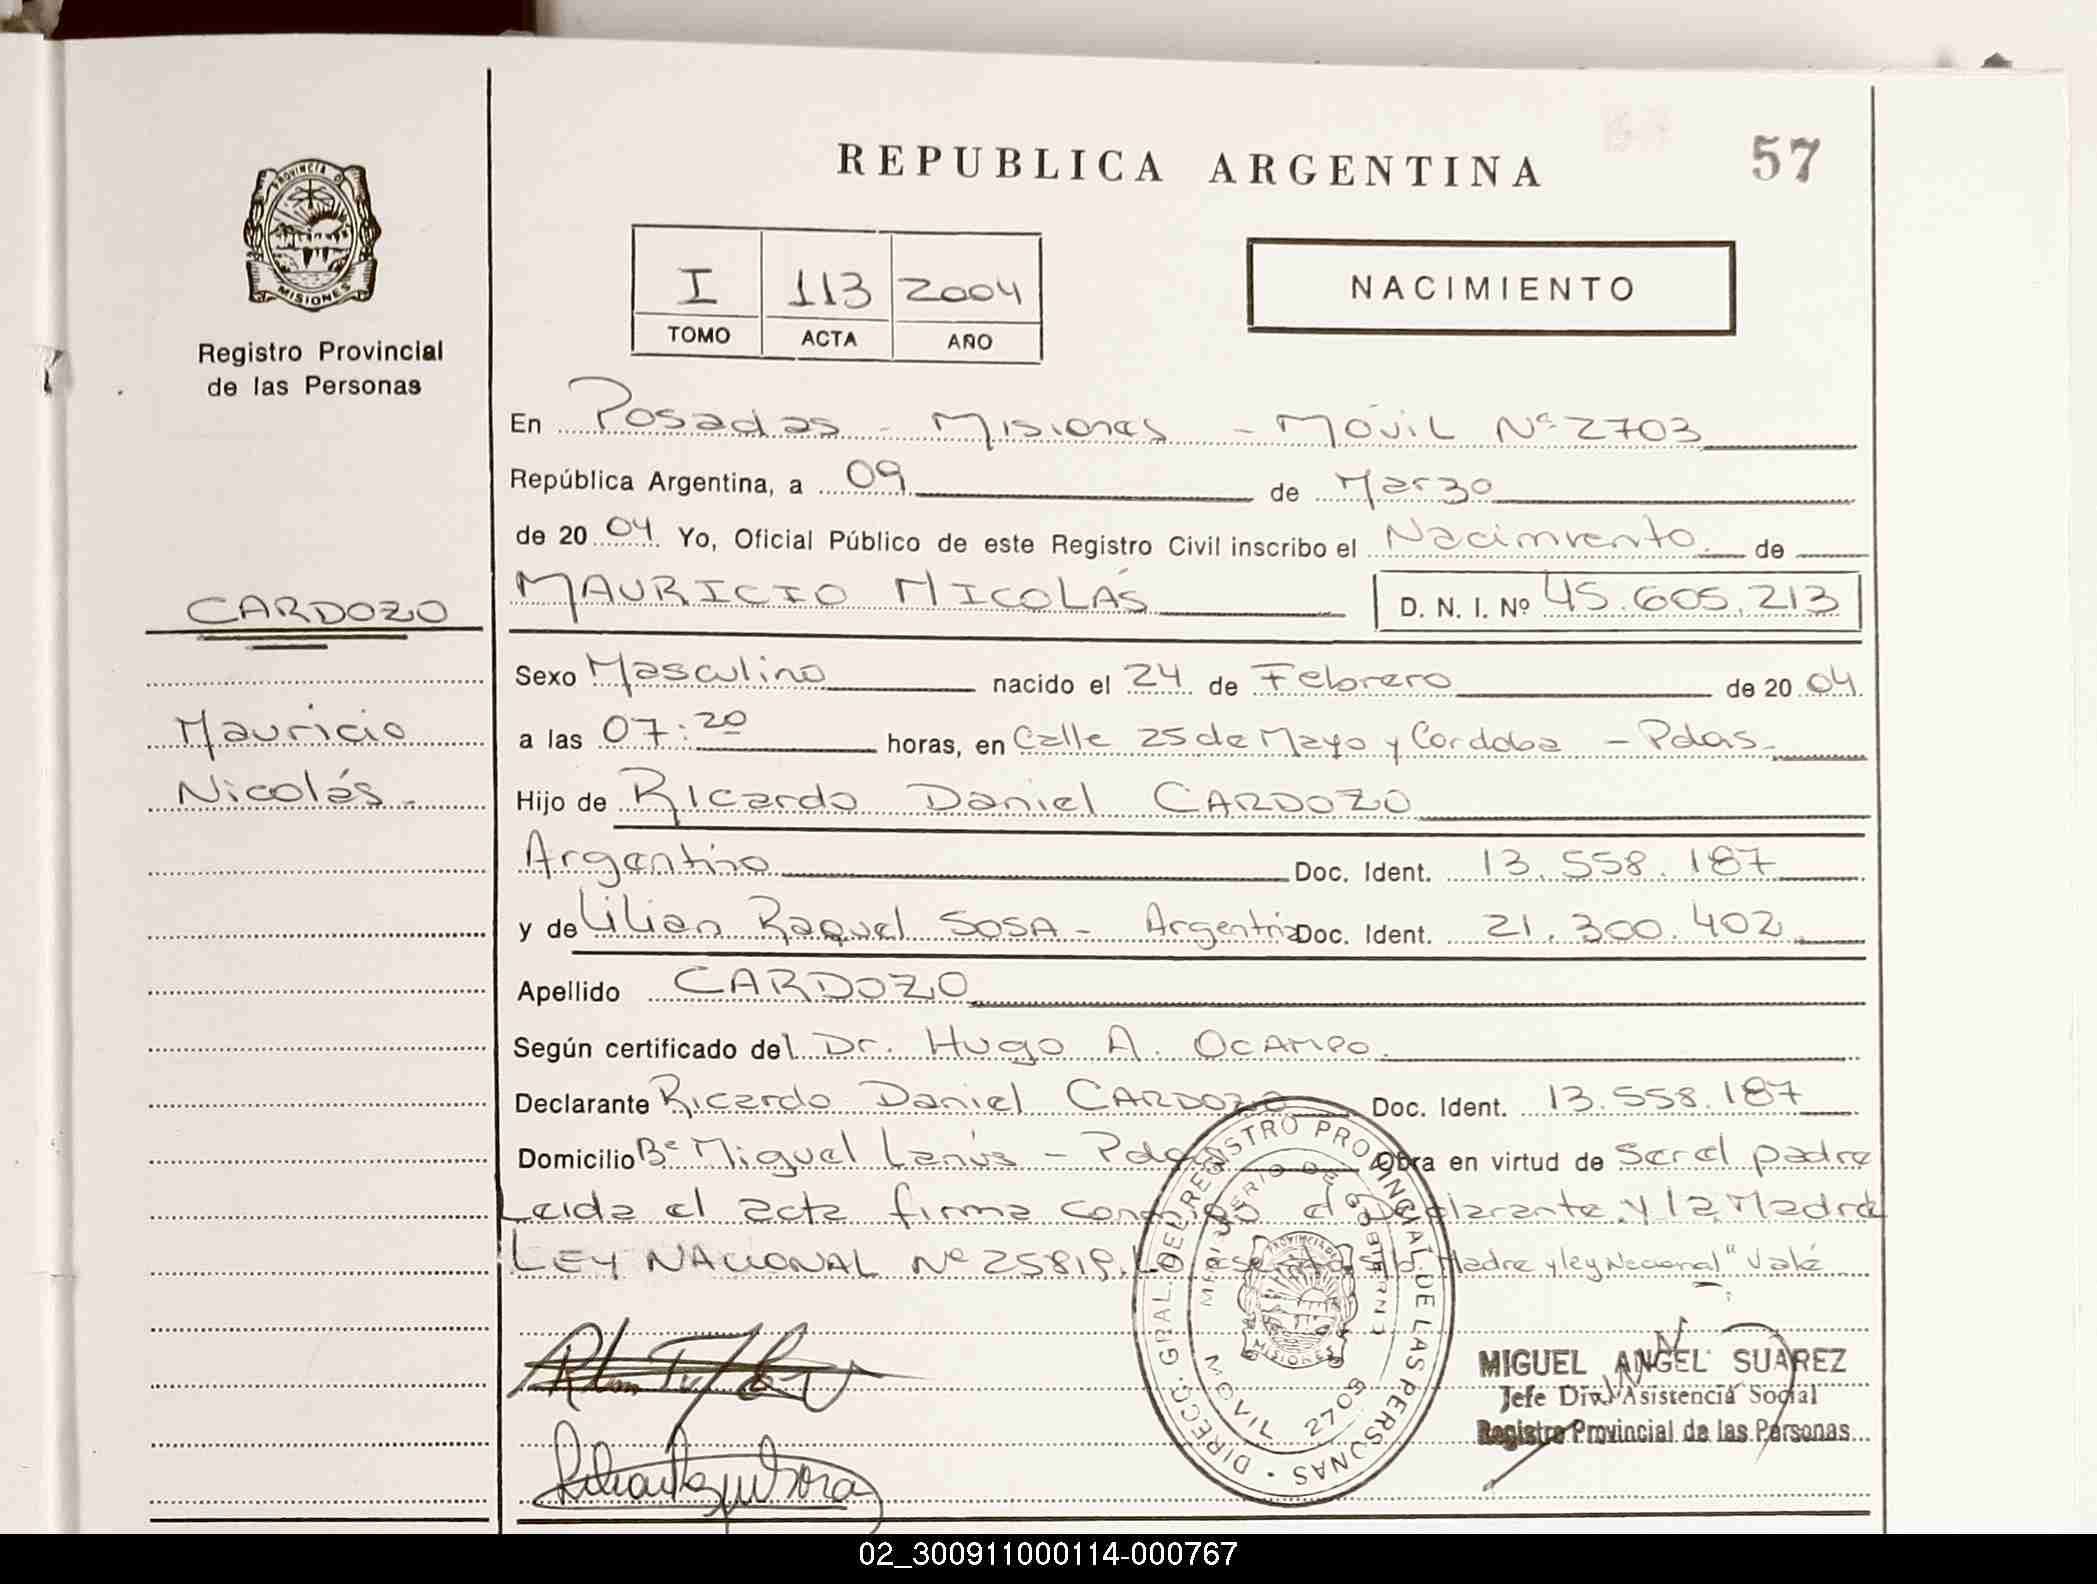 REPUBLICA ARGENTINA
57
PROVINCIA D
MISIONES
Registro Provincial
de las Personas
I 113 2004
TOMO ACTA AÑO
NACIMIENTO
En Posadas - Misiones - Móvil Nº 2703
República Argentina, a 09 de Marzo
de 2004 Yo, Oficial Público de este Registro Civil inscribo el Nacimiento de
CARDOZO
MAURICIO NICOLÁS D. N. I. Nº 45.605.213
Sexo Masculino nacido el 24 de Febrero de 2004
Mauricio
a las 07:20 horas, en Calle 25 de Mayo y Cordoba - Pdas.
Nicolás.
Hijo de Ricardo Daniel CARDOZO
Argentino Doc. Ident. 13.558.187
y de Lilian Raquel SOSA - Argentina Doc. Ident. 21.300.402
Apellido CARDOZO
Según certificado del Dr. Hugo A. Ocampo.
Declarante Ricardo Daniel CARDOZO Doc. Ident. 13.558.187
Domicilio Bº Miguel Lanús - Pdas Obra en virtud de Ser el padre
Leida el acta firma conmigo el Declarante y la Madre
LEY NACIONAL Nº 25819. Lo Madre y ley Nacional" Vale
DIRECC. GRAL. DEL REGISTRO PROVINCIAL DE LAS PERSONAS
MINISTERIO DE GOBIERNO
MISIONES
MOVIL 2703
MIGUEL ANGEL SUAREZ
Jefe Div. Asistencia Social
Registro Provincial de las Personas
02_300911000114-000767